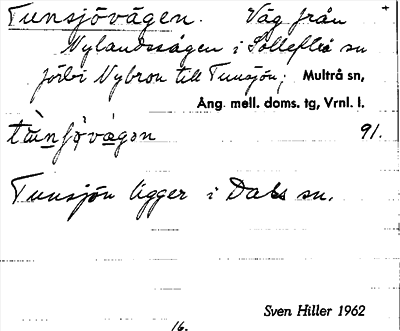 Tunsjövägen. Väg från
Nylandssågen i Sollefteå sn
förbi Nybron till Tunsjön; Multrå sn,
Ang. mell. doms. tg, Vrnl. l.
91.
Tunsjön ligger i Dals sn.
Sven Hiller 1962
16.